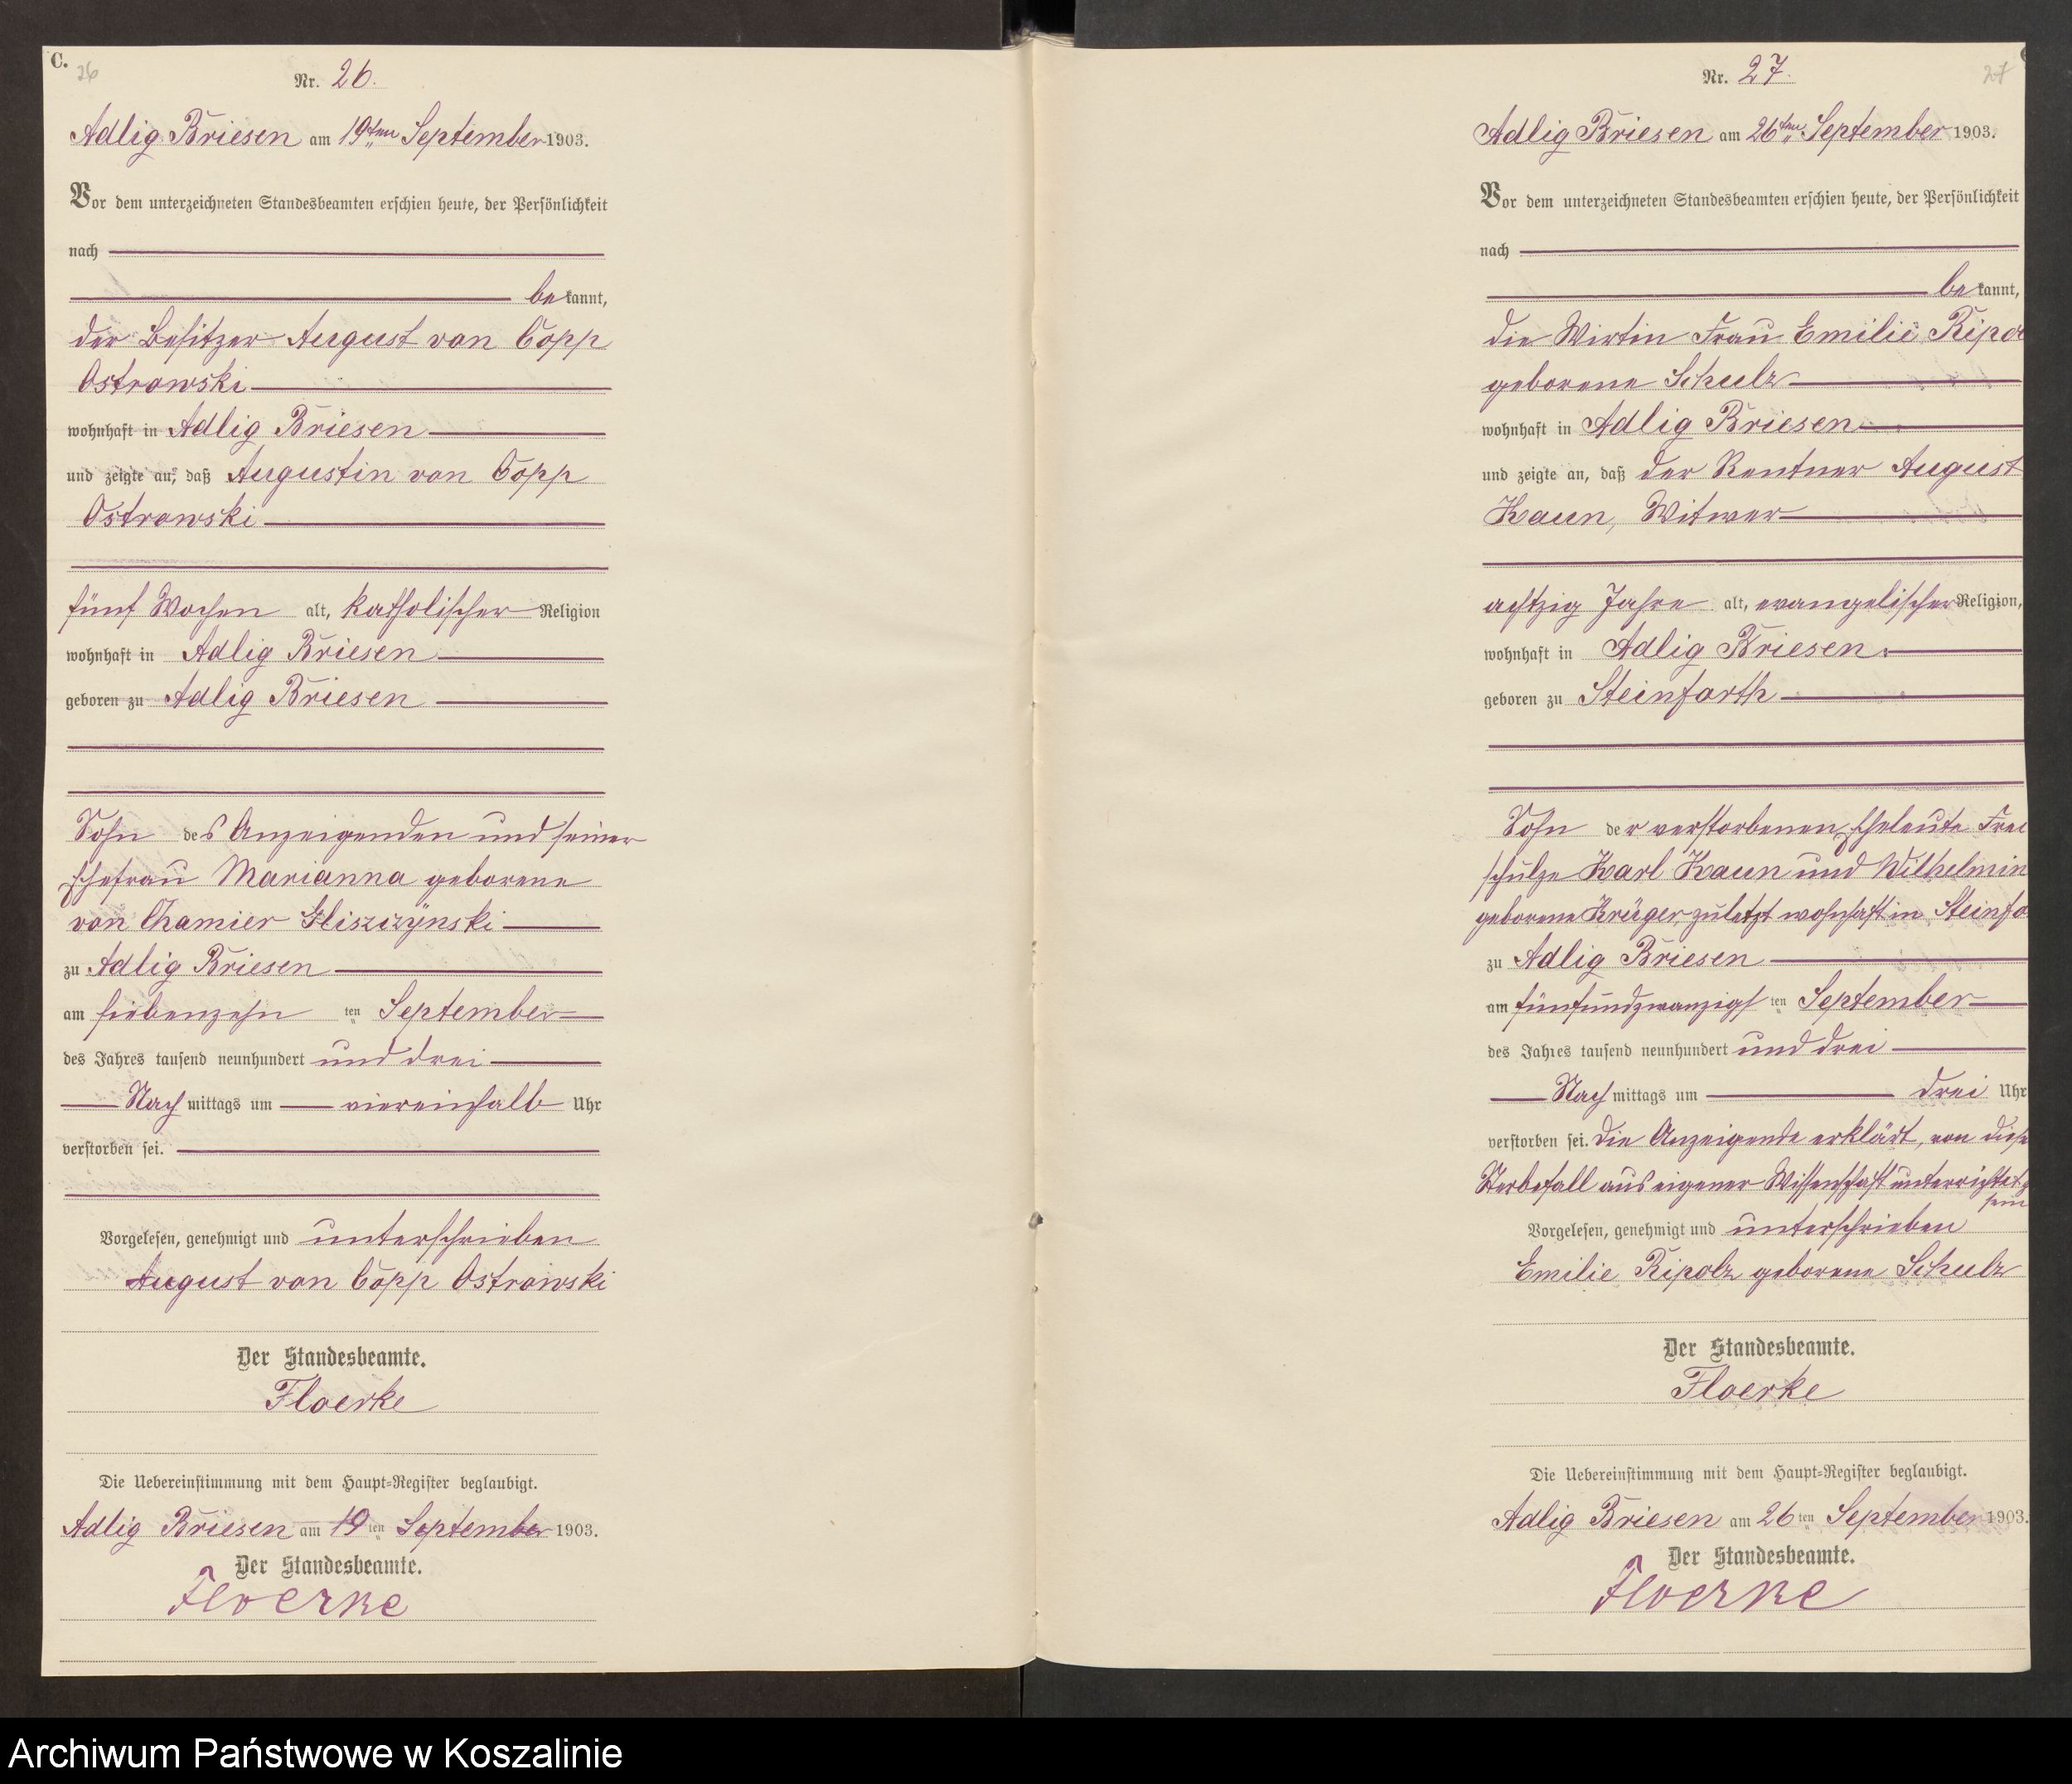 C.
26
Nr. 26.
Adlig Briesen am 19ten September 1903.
Vor dem unterzeichneten Standesbeamten erschien heute, der Persönlichkeit
nach
bekannt,
der Besitzer August von Cöpp
Ostrowski
wohnhaft in Adlig Briesen
und zeigte an, daß Augustin von Cöpp
Ostrowski
fünf Wochen alt, katholischer Religion
wohnhaft in Adlig Briesen
geboren zu Adlig Briesen
Sohn des Anzeigenden und seiner
Ehefrau Marianna geborene
von Chamier Gliszczynski
zu Adlig Briesen
am siebenzehn ten September
des Jahres tausend neunhundert und drei
Nachmittags um viereinhalb Uhr
verstorben sei.
Vorgelesen, genehmigt und unterschrieben
August von Cöpp Ostrowski
Der Standesbeamte.
Floerke
Die Uebereinstimmung mit dem Haupt-Register beglaubigt.
Adlig Briesen am 19ten September 1903.
Der Standesbeamte.
Floerke
27
Nr. 27.
Adlig Briesen am 26ten September 1903.
Vor dem unterzeichneten Standesbeamten erschien heute, der Persönlichkeit
nach
bekannt,
die Wirtin Frau Emilie Ripol
geborene Schulz
wohnhaft in Adlig Briesen
und zeigte an, daß der Rentner August
Kaun, Witwer
achtzig Jahre alt, evangelischer Religion,
wohnhaft in Adlig Briesen
geboren zu Steinforth
Sohn der verstorbenen Eheleute Frei
schulze Karl Kaun und Wilhelmin
geborene Krüger, zuletzt wohnhaft in Steinfo
zu Adlig Briesen
am fünfundzwanzigsten September
des Jahres tausend neunhundert und drei
Nachmittags um drei Uhr
verstorben sei. Die Anzeigende erklärt, von diese
Sterbefall aus eigener Wissenschaft unterrichtet
sein
Vorgelesen, genehmigt und unterschrieben
Emilie Ripolz geborene Schulz
Der Standesbeamte.
Floerke
Die Uebereinstimmung mit dem Haupt-Register beglaubigt.
Adlig Briesen am 26ten September 1903.
Der Standesbeamte.
Floerke
Archiwum Państwowe w Koszalinie